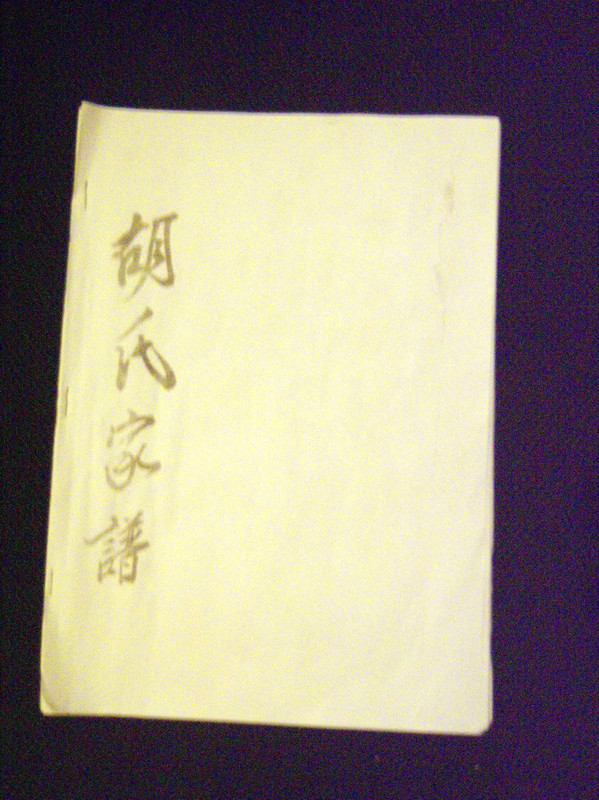 胡氏家譜